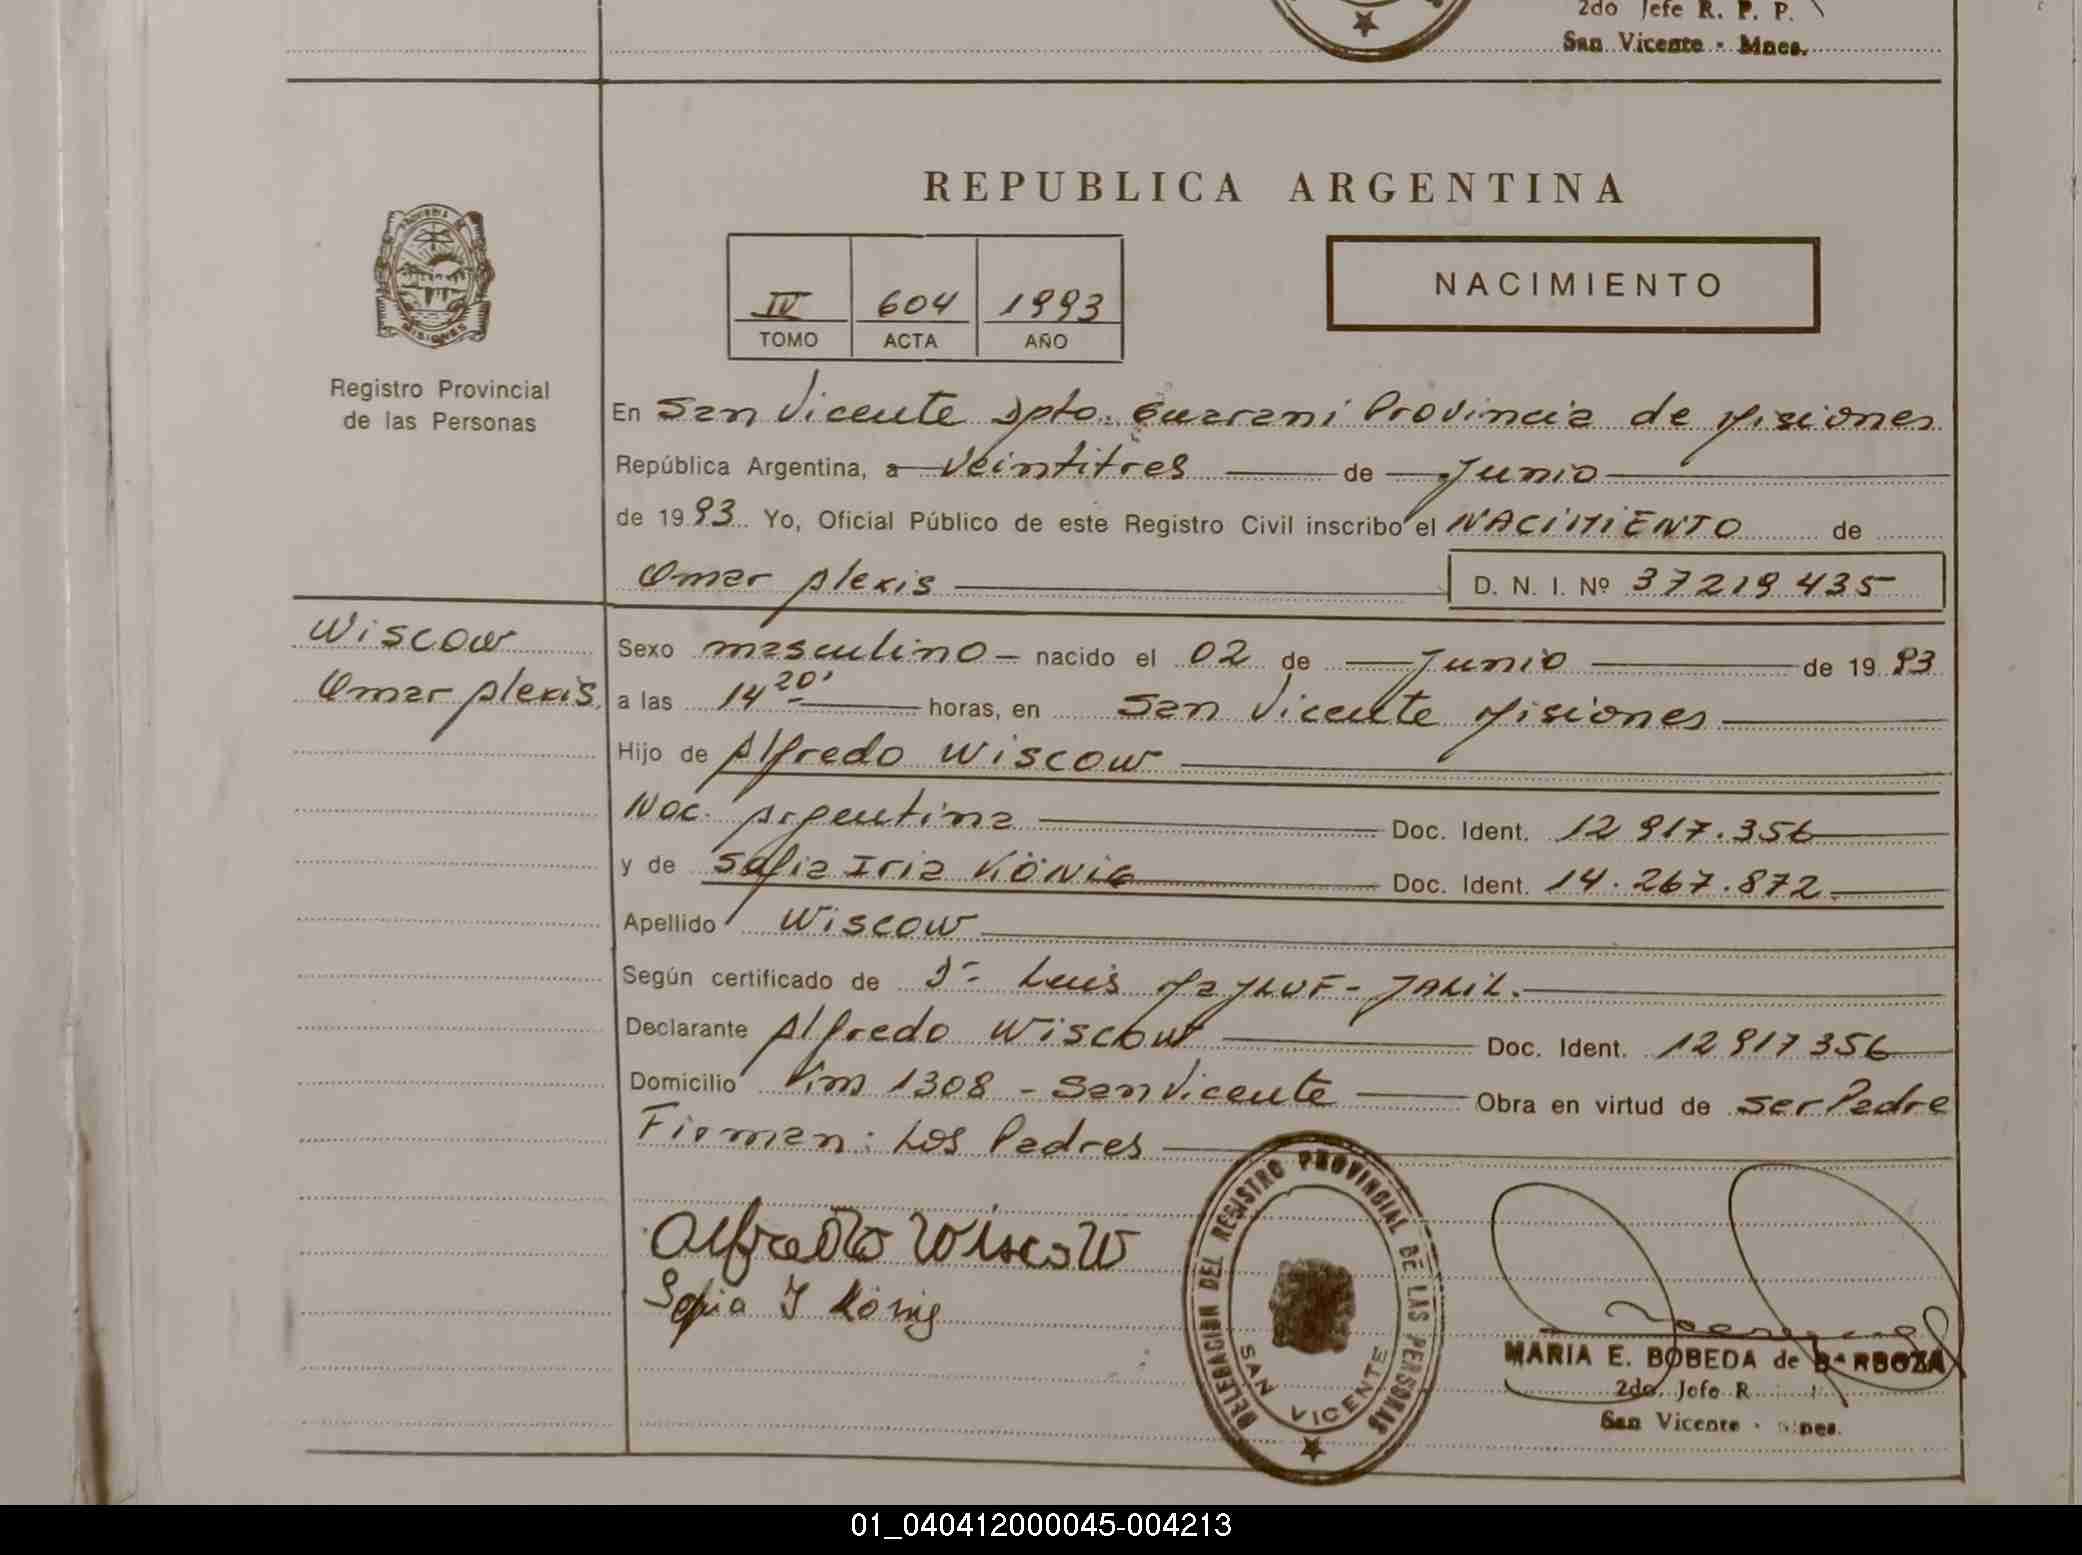 2do Jefe R. P. P.
San Vicente - Mnes.
REPUBLICA ARGENTINA
MISIONES
NACIMIENTO
IV 604 1993
TOMO ACTA AÑO
Registro Provincial
de las Personas
En San Vicente Dpto. Guarani Provincia de Misiones
República Argentina, a Veintitres de Junio
de 1993 Yo, Oficial Público de este Registro Civil inscribo el NACIMIENTO de
Omar Alexis D. N. I. Nº 37219435
Wiscow
Omar Alexis
Sexo masculino nacido el 02 de Junio de 1993
a las 14 20' horas, en San Vicente Misiones
Hijo de Alfredo Wiscow
Nac. Argentina Doc. Ident. 12 917.356
y de Sofia Iria KÖNIG Doc. Ident. 14.267.872
Apellido Wiscow
Según certificado de Dr Luis JALIL.
Declarante Alfredo Wiscow Doc. Ident. 12917356
Domicilio 1308 - San Vicente Obra en virtud de ser Padre
Firman: Los Padres
Alfredo Wiscow
Sofia I König
DELEGACION DEL REGISTRO PROVINCIAL DE LAS PERSONAS
SAN VICENTE
MARIA E. BOBEDA de BARBOZA
2do. Jefe R
San Vicente - Mnes.
01_040412000045-004213